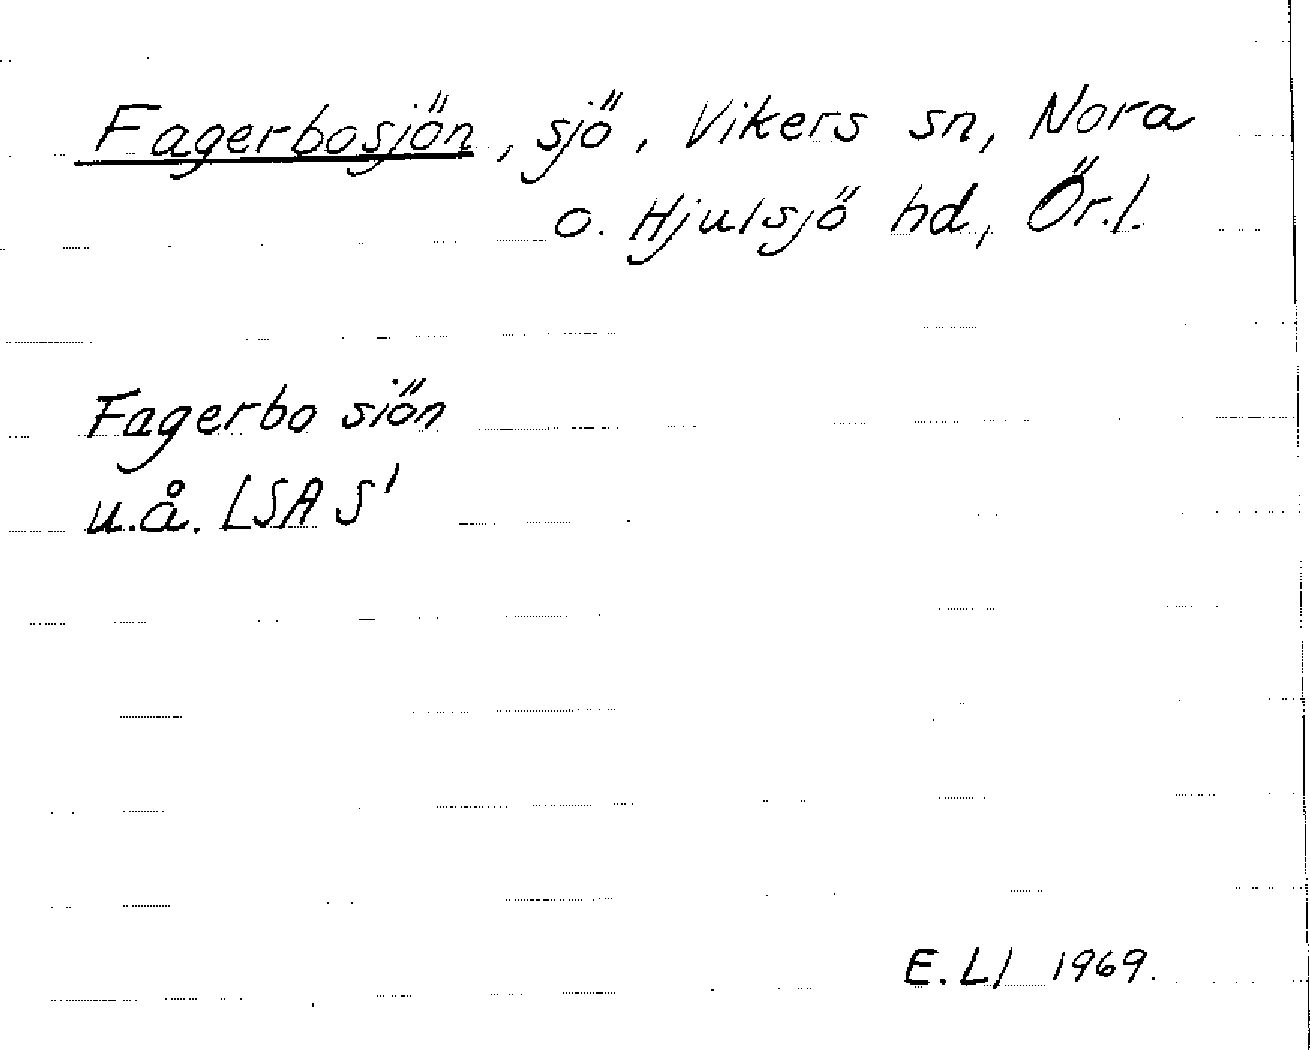 Fagerbosjön, sjö, Vikers sn, Nora
o. Hjulsjö hd, Ör.l.
Fagerbo siön
u.å. LSA S'
E. Ll 1969.